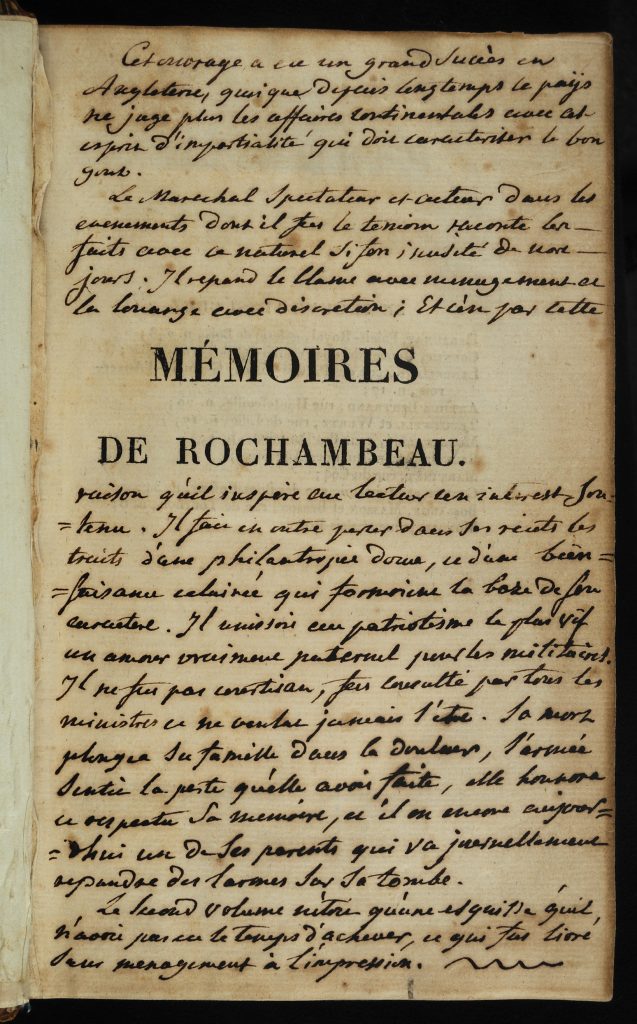 Cet ouvrage a eu un grand succès en
Angleterre, quoique depuis longtemps ce païs
ne juge plus les affaires continentales avec cet
esprit d'impartialité qui doit caracteriser le bon
gout.
Le Marechal Spectateur et acteur dans les
evenements dont il fut le temoin raconte les
faits avec ce naturel si fon inusité de nos
jours. Il repand le blame avec menagement et
la louange avec discretion ; Et c'en par cette
MÉMOIRES
DE ROCHAMBEAU.
raison qu'il inspire au lecteur un interest sou-
=tenu. Il fait en outre percer dans ses récits les
traits d'une philantropie douce, et d'une bien=
=faisance eclairée qui formoient la baze de son
caractere. Il unissoit au patriotisme le plus vif
un amour vraiment paternel pour les militaires.
Il ne fut pas courtisan, fut consulté par tous les
ministres et ne voulut jamais l'être. Sa mort
plongea sa famille dans la douleur, l'armée
sentit la perte qu'elle avoit faite, elle honnora
et respecta sa mémoire, et il en encore aujour=
=d'hui un de ses parents qui va journellement
repandre des larmes sur sa tombe.
Le second volume n'étoit qu'une esquisse qu'il
n'avoit pas eu le temps d'achever, et qui fut livré
sans menagement à l'impression.